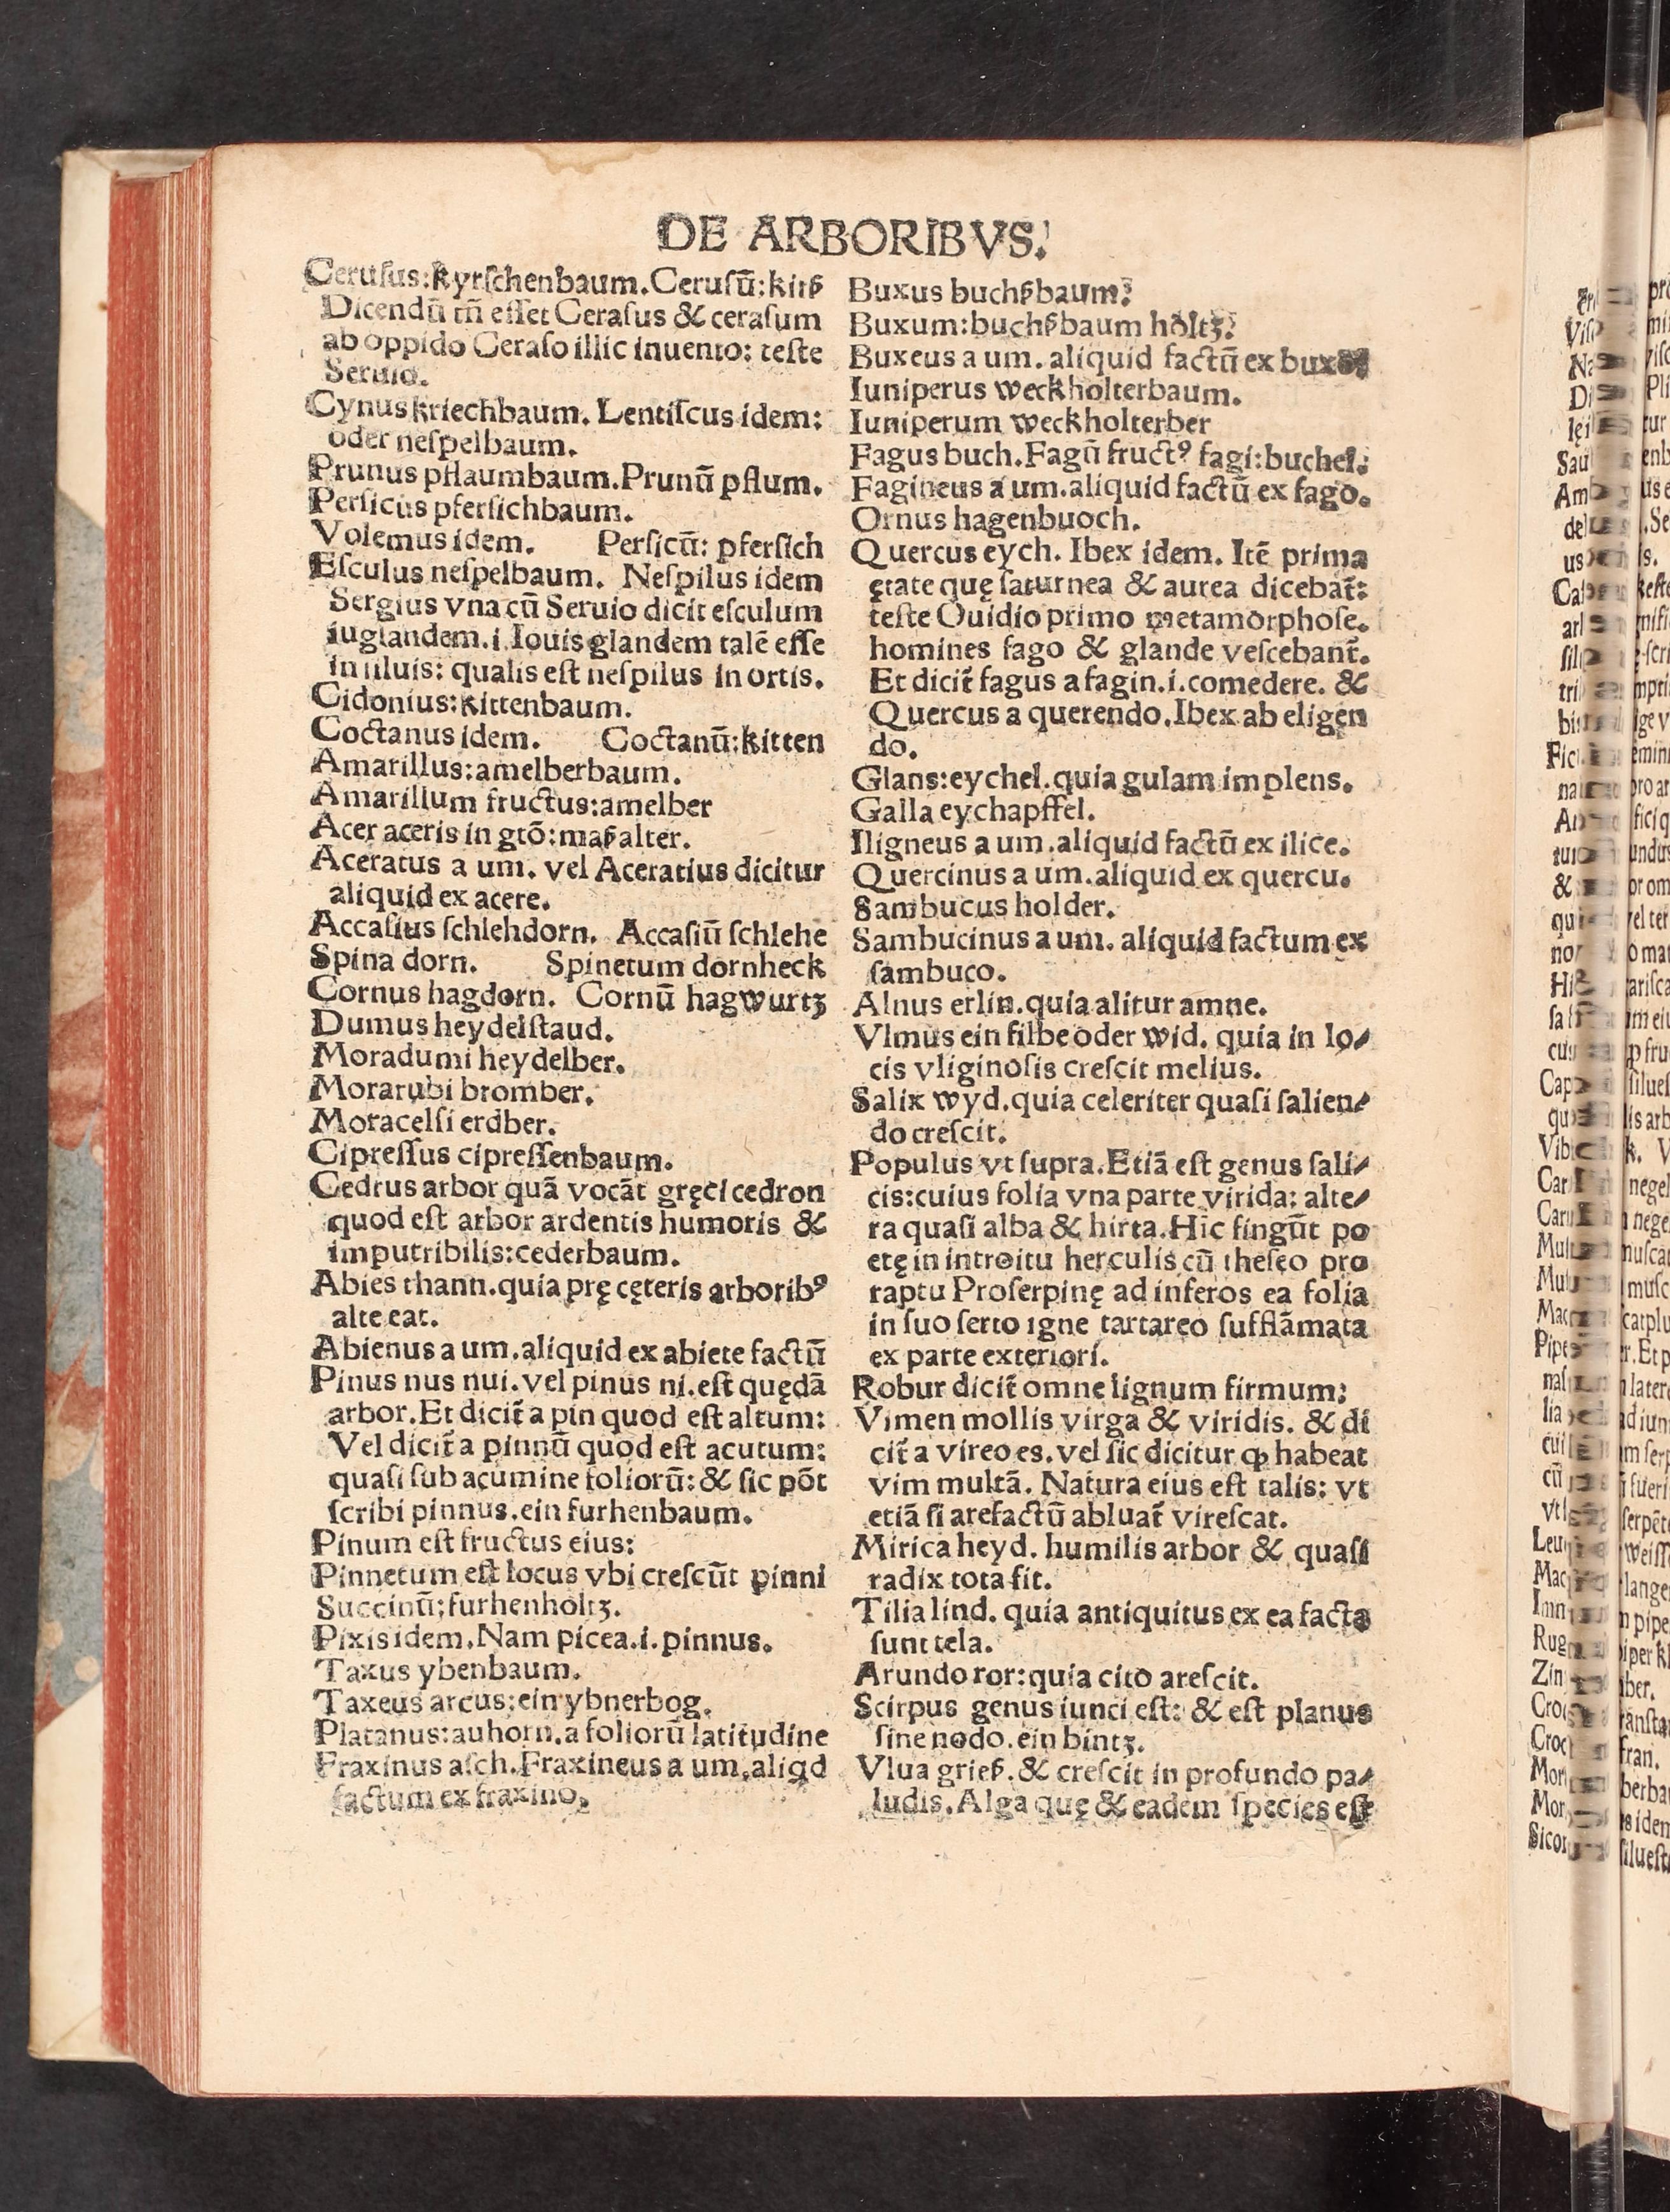 DE ARBORIBVS.
Ceruſus:kyrſchenbaum.Ceruſū:kirß
Dicendū tñ eſſet Ceraſus & ceraſum
ab oppido Ceraſo illic inuento: teſte
Seruio.
Cynus kriechbaum. Lentiſcus idem:
oder neſpelbaum.
Prunus pflaumbaum.Prunū pflum.
Perſicus pferſichbaum.
Volemus idem. Perſicū: pferſich
Eſculus neſpelbaum. Neſpilus idem
Sergius vna cū Seruio dicit eſculum
iuglandem.i.Iouis glandem talē eſſe
in ſiluis: qualis eſt neſpilus in ortis.
Cidonius:kittenbaum.
Coctanus idem. Coctanū:kitten
Amarillus:amelberbaum.
Amarillum fructus:amelber
Acer aceris in gtō:maßalter.
Aceratus a um. vel Aceratius dicitur
aliquid ex acere.
Accaſius ſchlehdorn. Accaſiū ſchlehe
Spina dorn. Spinetum dornheck
Cornus hagdorn. Cornū hagwurtʒ
Dumus heydelſtaud.
Moradumi heydelber.
Morarubi bromber.
Moracelſi erdber.
Cipreſſus cipreſſenbaum.
Cedrus arbor quā vocāt gręci cedron
quod eſt arbor ardentis humoris &
imputribilis:cederbaum.
Abies thann.quia prę cęteris arboribꝰ
alte eat.
Abienus a um.aliquid ex abiete factū
Pinus nus nui.vel pinus ni.eſt quędā
arbor.Et dicit̃ a pin quod eſt altum:
Vel dicit̃ a pinnū quod eſt acutum:
quaſi ſub acumine foliorū:& ſic pōt
ſcribi pinnus.ein furhenbaum.
Pinum eſt fructus eius:
Pinnetum eſt locus vbi creſcūt pinni
Succinū:furhenholtʒ.
Pixis idem.Nam picea.i.pinnus.
Taxus ybenbaum.
Taxeus arcus:ein ybnerbog.
Platanus:auhorn.a foliorū latitudine
Fraxinus aſch.Fraxineus a um.aliqd
factum ex fraxino.
Buxus buchßbaum.
Buxum:buchßbaum holtʒ.
Buxeus a um. aliquid factū ex buxo
Iuniperus weckholterbaum.
Iuniperum weckholterber
Fagus buch.Fagū fructꝰ fagi:buchel.
Fagineus a um.aliquid factū ex fago.
Ornus hagenbuoch.
Quercus eych. Ibex idem. Itē prima
ętate quę ſaturnea & aurea dicebat̃:
teſte Ouidio primo metamorphoſe.
homines fago & glande veſcebant̃.
Et dicit̃ fagus a fagin.i.comedere. &
Quercus a querendo.Ibex ab eligen
do.
Glans:eychel.quia gulam implens.
Galla eychapffel.
Iligneus a um.aliquid factū ex ilice.
Quercinus a um.aliquid ex quercu.
Sambucus holder.
Sambucinus a um. aliquid factum ex
ſambuco.
Alnus erlin.quia alitur amne.
Vlmus ein filbe oder wid. quia in lo⸗
cis vliginoſis creſcit melius.
Salix wyd.quia celeriter quaſi ſalien⸗
do creſcit.
Populus vt ſupra.Etiā eſt genus ſali⸗
cis:cuius folia vna parte virida: alte⸗
ra quaſi alba & hirta.Hic fingūt po
etę in introitu herculis cū theſeo pro
raptu Proſerpinę ad inferos ea folia
in ſuo ſerto igne tartareo ſufflāmata
ex parte exteriori.
Robur dicit̃ omne lignum firmum:
Vimen mollis virga & viridis. & di
cit̃ a vireo es. vel ſic dicitur ꝙ habeat
vim multā. Natura eius eſt talis: vt
etiā ſi arefactū abluat̃ vireſcat.
Mirica heyd. humilis arbor & quaſi
radix tota fit.
Tilia lind. quia antiquitus ex ea facta
ſunt tela.
Arundo ror:quia cito areſcit.
Scirpus genus iunci eſt: & eſt planus
ſine nodo.ein bintʒ.
Vlua grieß.& creſcit in profundo pa⸗
ludis.Alga quę & eadem ſpecies eſt